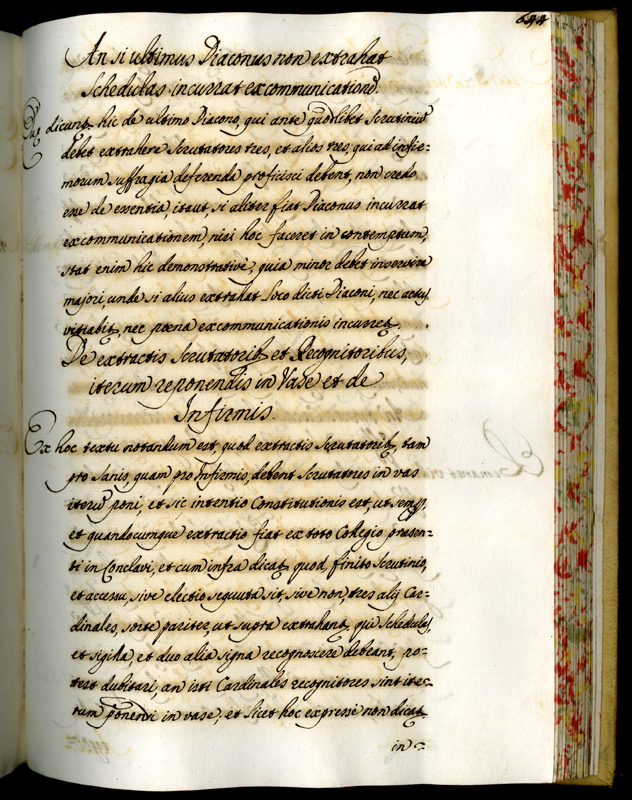 644
An si ultimus Diaconus non extrahat
Schedulas incurrat excommunicationē.
dicunt hic de ultimo Diacono, qui ante quodlibet Scrutiniū
debet extrahere Scrutatores tres, et alios tres, qui ad infir=
morum suffragia deferenda proficisci debent, non credo
esse de essentia, itaut, si aliter fiat Diaconus incurrat
excommunicationem, nisi hoc faceret in contemptum,
stat enim hic demonstrativè, quia minor debet inservire
majori, unde si alius extrahat loco dicti Diaconi, nec actus
vitiabit, nec pœna excommunicationis incurret.
De extractis Scrutatorib et Recognitoribus,
iterum reponendis in Vase et de
Infirmis.
Ex hoc textu notandum est, quod extractis Scrutatorib, tam
pro Sanis, quam pro Infirmis, debent Scrutatores in vas
iterū poni, et sic intentio Constitutionis est, ut semp,
et quandocumque extractio fiat ex toto Collegio præsen=
ti in Conclavi, et cum infra dicat quod finito Scrutinio,
et accessu, sive electio sequuta sit, sive non, tres alij Car=
dinales, sorte pariter, ut supra extrahant, qui Schedulas,
et sigilla, et duo alia signa recognoscere debeant, po=
test dubitari, an isti Cardinales recognitores sint iter=
tum ponendi in vase, et licet hoc expresse non dicat
in =